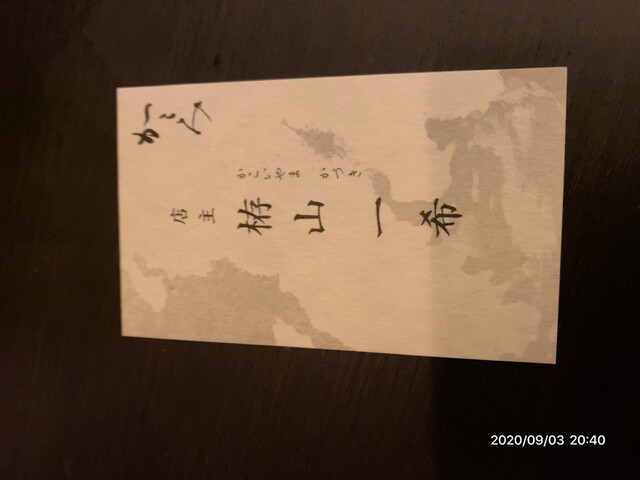 店主
かこいやま かづき
栫山一希
2020/09/03 20:40